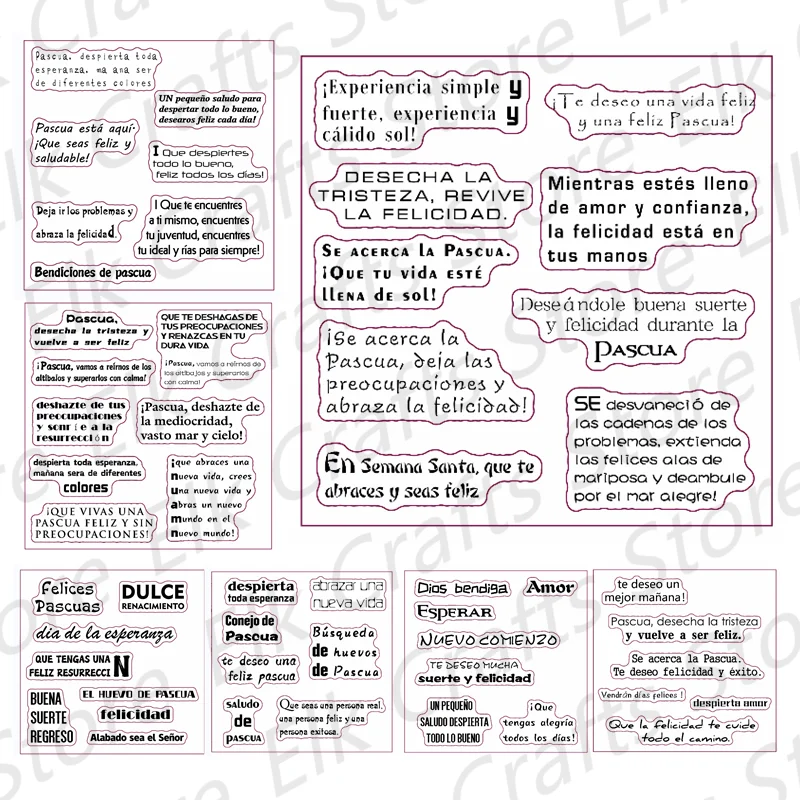 Pascua, despierta toda
esperanza. ma ana ser
de diferentes colores
UN pequeño saludo para
despertar todo lo bueno,
desearos feliz cada día!
Pascua está aquí·
¡Que seas feliz y
saludable!
I Que despiertes
todo lo bueno,
feliz todos los días!
Deja ir los problemas y
abraza la felicidad.
¡ Que te encuentres
a ti mismo, encuentres
tu juventud, encuentres
tu ideal y rías para siempre!
Bendiciones de pascua
¡Experiencia simple y
fuerte, experiencia y
cálido sol!
¡Te deseo una vida feliz
y una feliz Pascua!
DESECHA LA
TRISTEZA, REVIVE
LA FELICIDAD.
Mientras estés lleno
de amor y confianza,
la felicidad está en
tus manos
Se acerca la Pascua.
¡Que tu vida esté
llena de sol!
Deseándole buena suerte
y felicidad durante la
PASCUA
¡Se acerca la
Pascua, deja las
preocupaciones y
abraza la felicidad!
SE desvaneció de
las cadenas de los
problemas, extienda
las felices alas de
mariposa y deambule
por el mar alegre!
En Semana Santa, que te
abraces y seas feliz
Pascua,
desecha la tristeza y
vuelve a ser feliz
QUE TE DESHAGAS DE
TUS PREOCUPACIONES
Y RENAZCAS EN TU
DURA VIDA
¡Pascua, vamos a reírnos de los
altibajos y superarlos con calma!
¡Pascua, vamos a reírnos de
los altibajos y superarlos
con calma!
deshazte de tus
preocupaciones
y sonr íe a la
resurrección
¡Pascua, deshazte de
la mediocridad,
vasto mar y cielo!
despierta toda esperanza,
mañana sera de diferentes
colores
¡que abraces una
nueva vida, crees
una nueva vida y
abras un nuevo
mundo en el
nuevo mundo!
¡QUE VIVAS UNA
PASCUA FELIZ Y SIN
PREOCUPACIONES!
Felices
Pascuas
DULCE
RENACIMIENTO
día de la esperanza
QUE TENGAS UNA
FELIZ RESURRECCI N
BUENA
SUERTE
REGRESO
EL HUEVO DE PASCUA
felicidad
Alabado sea el Señor
despierta
toda esperanza
abrazar una
nueva vida
Conejo de
Pascua
Búsqueda
de huevos
de Pascua
te deseo una
feliz pascua
saludo
de
pascua
Que seas una persona real,
una persona feliz y una
persona exitosa.
Dios bendiga
Amor
Esperar
NUEVO COMIENZO
TE DESEO MUCHA
suerte y felicidad
UN PEQUEÑO
SALUDO DESPIERTA
TODO LO BUENO
¡Que
tengas alegría
todos los días!
te deseo un
mejor mañana!
Pascua, desecha la tristeza
y vuelve a ser feliz.
Se acerca la Pascua.
Te deseo felicidad y éxito.
Vendrán días felices !
despierta amor
Que la felicidad te cuide
todo el camino.
Elk Crafts Store